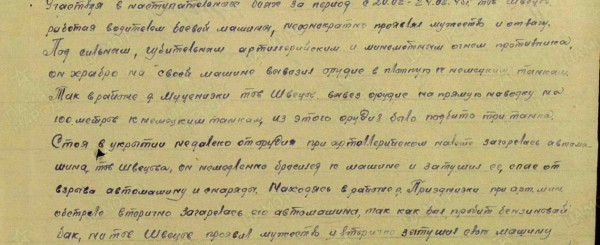 Участвуя в наступательных боях за период с 20.02 - 24.02.45г. тов Швецов,
работая водителем боевой машины, неоднократно проявлял мужество и отвагу.
Под сильным, губительным артиллерийским и минометным огнем противника,
он храбро на своей машине вывозил орудие в плотную к немецким танкам.
Так в районе д. Мученизки тов Швецов вывез орудие на прямую наводку на
100 метров к немецким танкам, из этого орудия было подбито три танка.
Стоя в укрытии недалеко от орудия при артиллерийском налете загорелась автома-
шина тов Швецова, он немедленно бросился к машине и затушил ее, спас от
взрыва автомашину и снаряды. Находясь в районе д. Приздники при арт. мин
обстреле вторично загорелась его автомашина, так как был пробит бензиновой
бак, но тов Швецов проявил мужество и вторично затушил свою машину